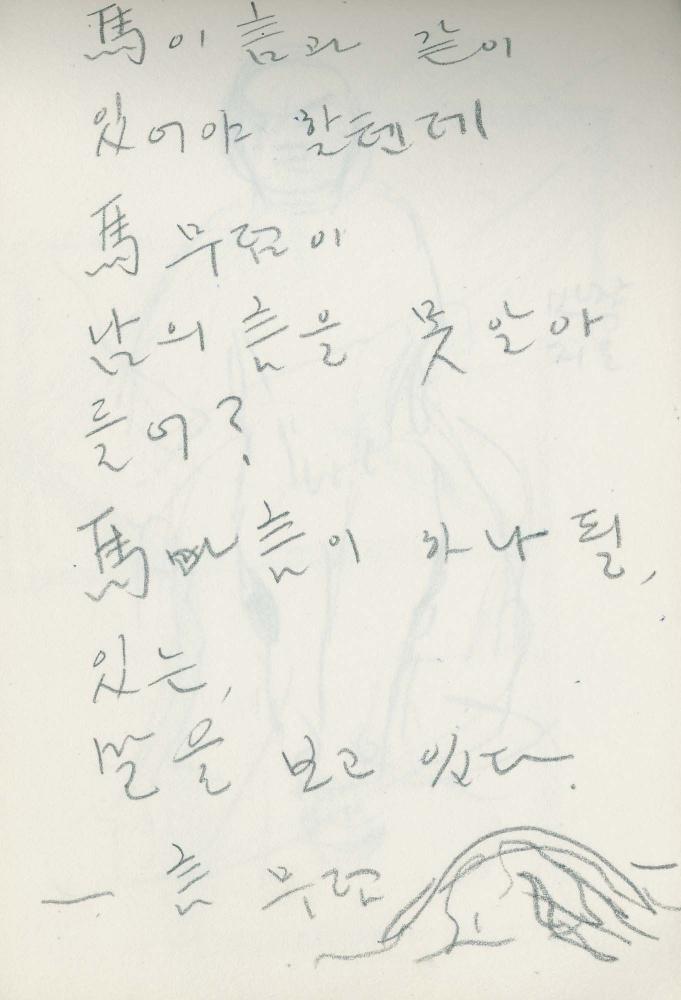 馬이 言과 같이
있어야 할텐데
馬 무덤이
남의 言을 못 알아
들어?
馬 言이 하나 될,
있는,
말을 보고 있다.
— 言 무덤